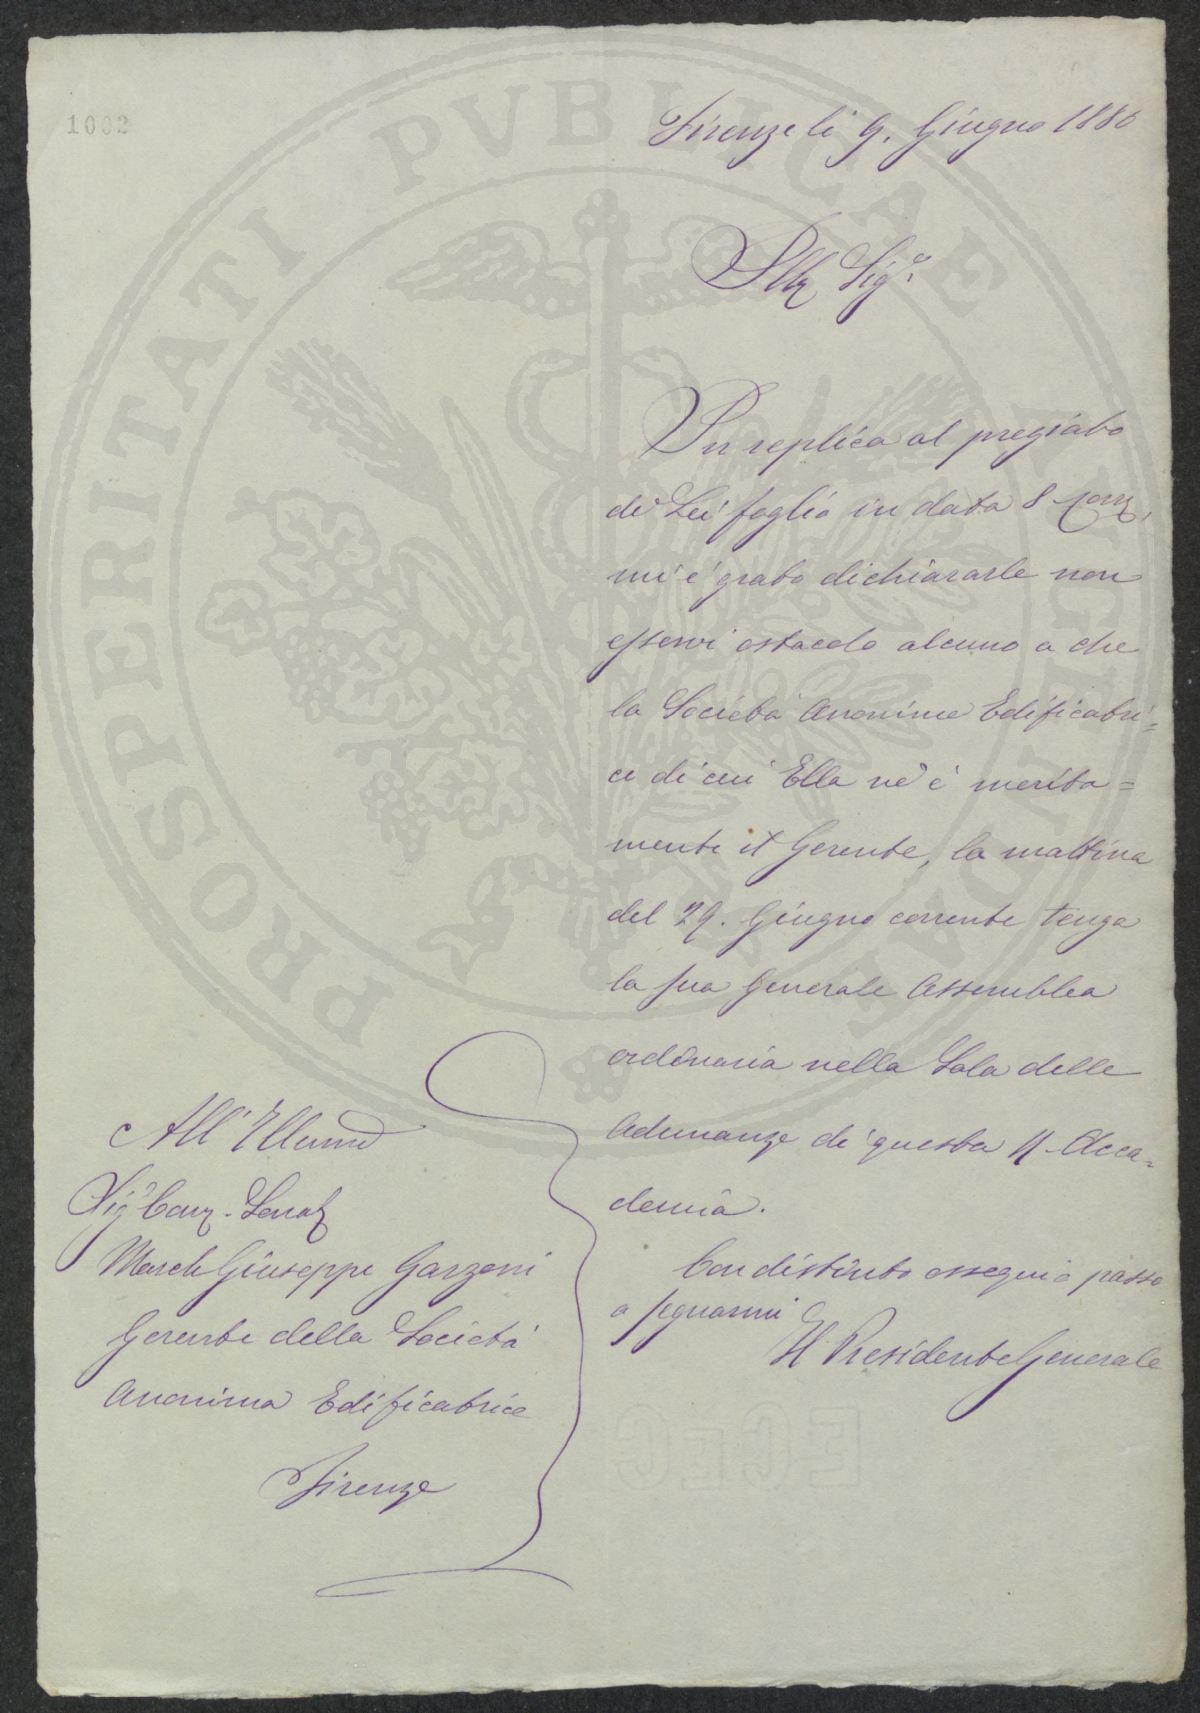 1002
Firenze li 9. Giugno 1880
Sig.e
In replica al pregiato
di Lei foglio in data 8 Corr.
mi è grato dichiararle non
esservi ostacolo alcuno a che
la Società Anonima Edificatri=
ce di cui Ella ne è merita=
mente il Gerente, la mattina
del 29. Giugno corrente tenga
la sua Generale Assemblea
ordinaria nella Sala delle
Adunanze di questa R. Acca=
demia.
Con distinto ossequio passo
a segnarmi
Il Presidente Generale
All'Illumo
Sig. Senat
March Giuseppe Garzoni
Gerente della Società
Anonima Edificatrice
Firenze
PROSPERITATI PVBLICAE AVGENDAE